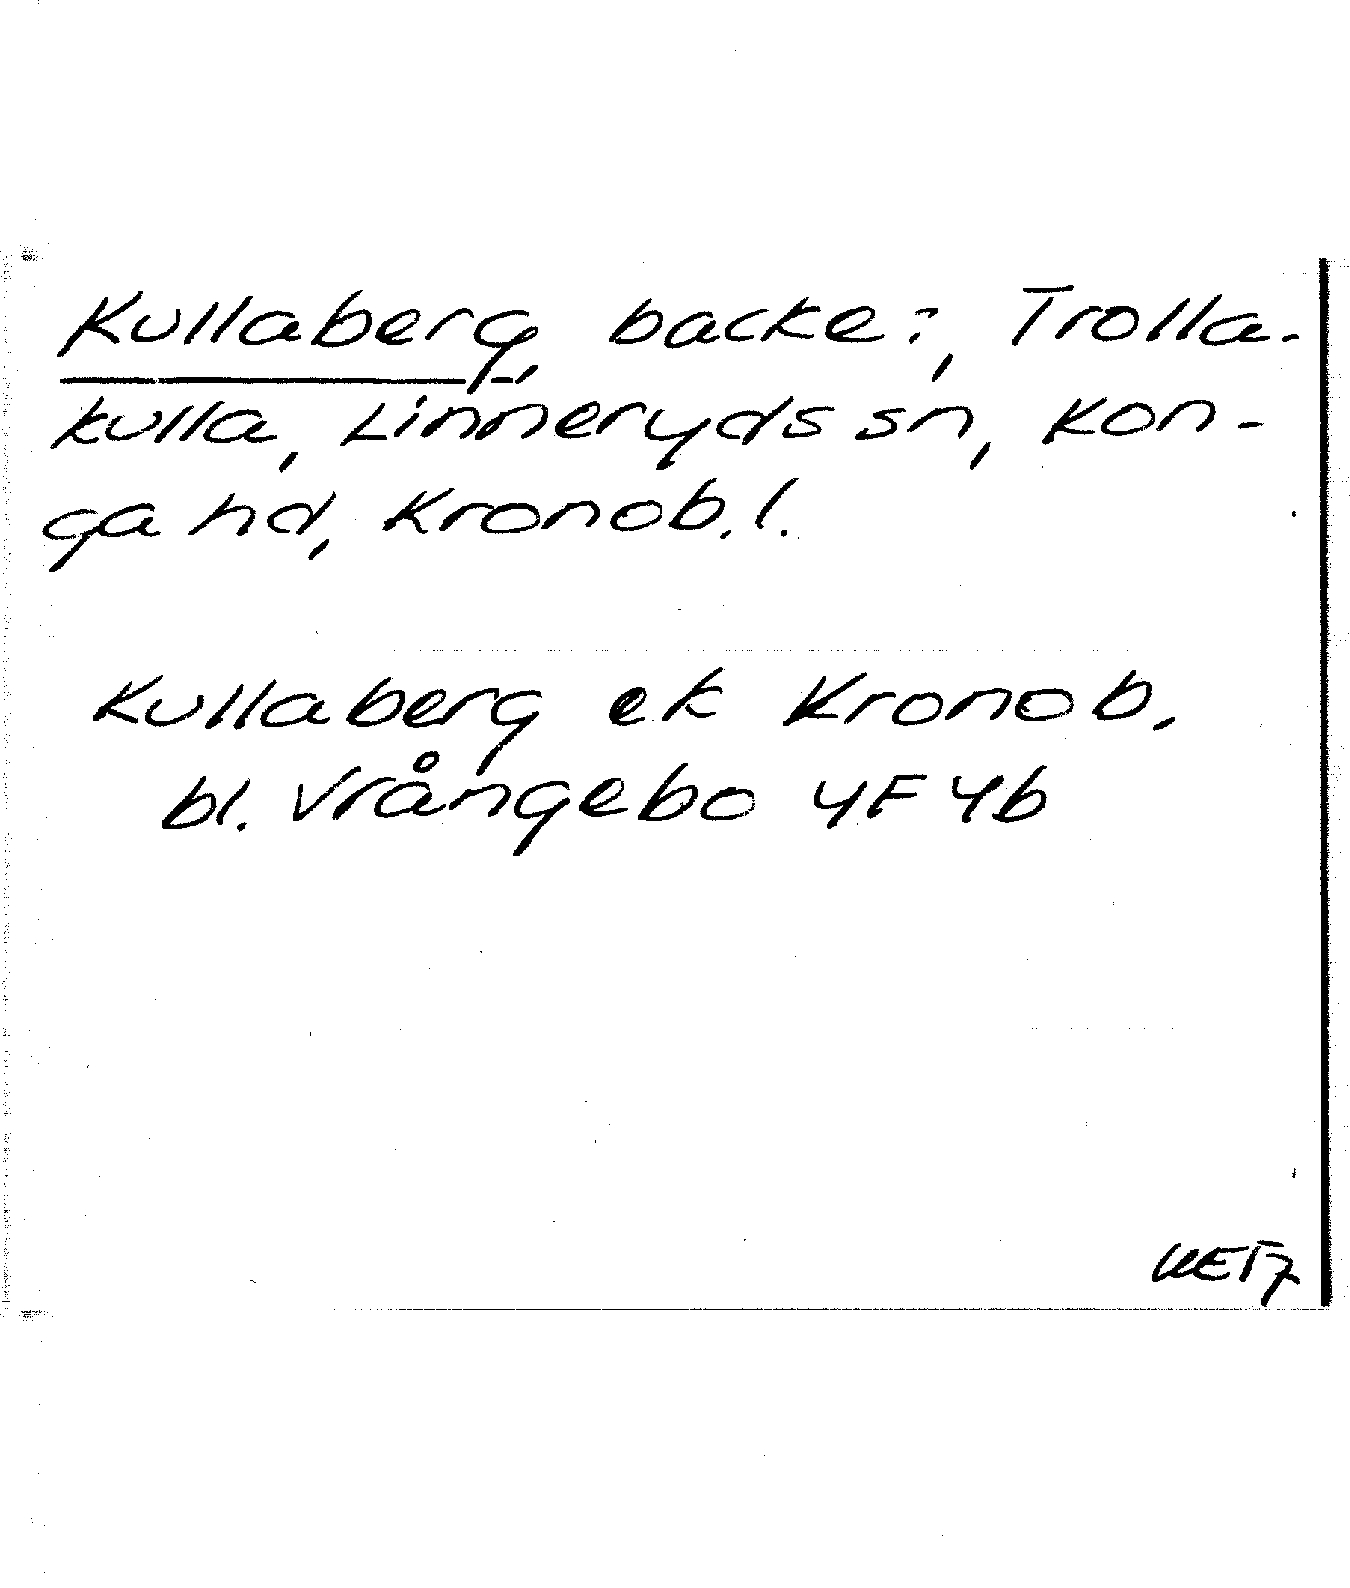 Kullaberg, backe?, Trolla-
kulla, Linneryds sn, Kon-
ga hd, Kronob. l.
Kullaberg ek Kronob.
bl. Vrångebo 4F 4b